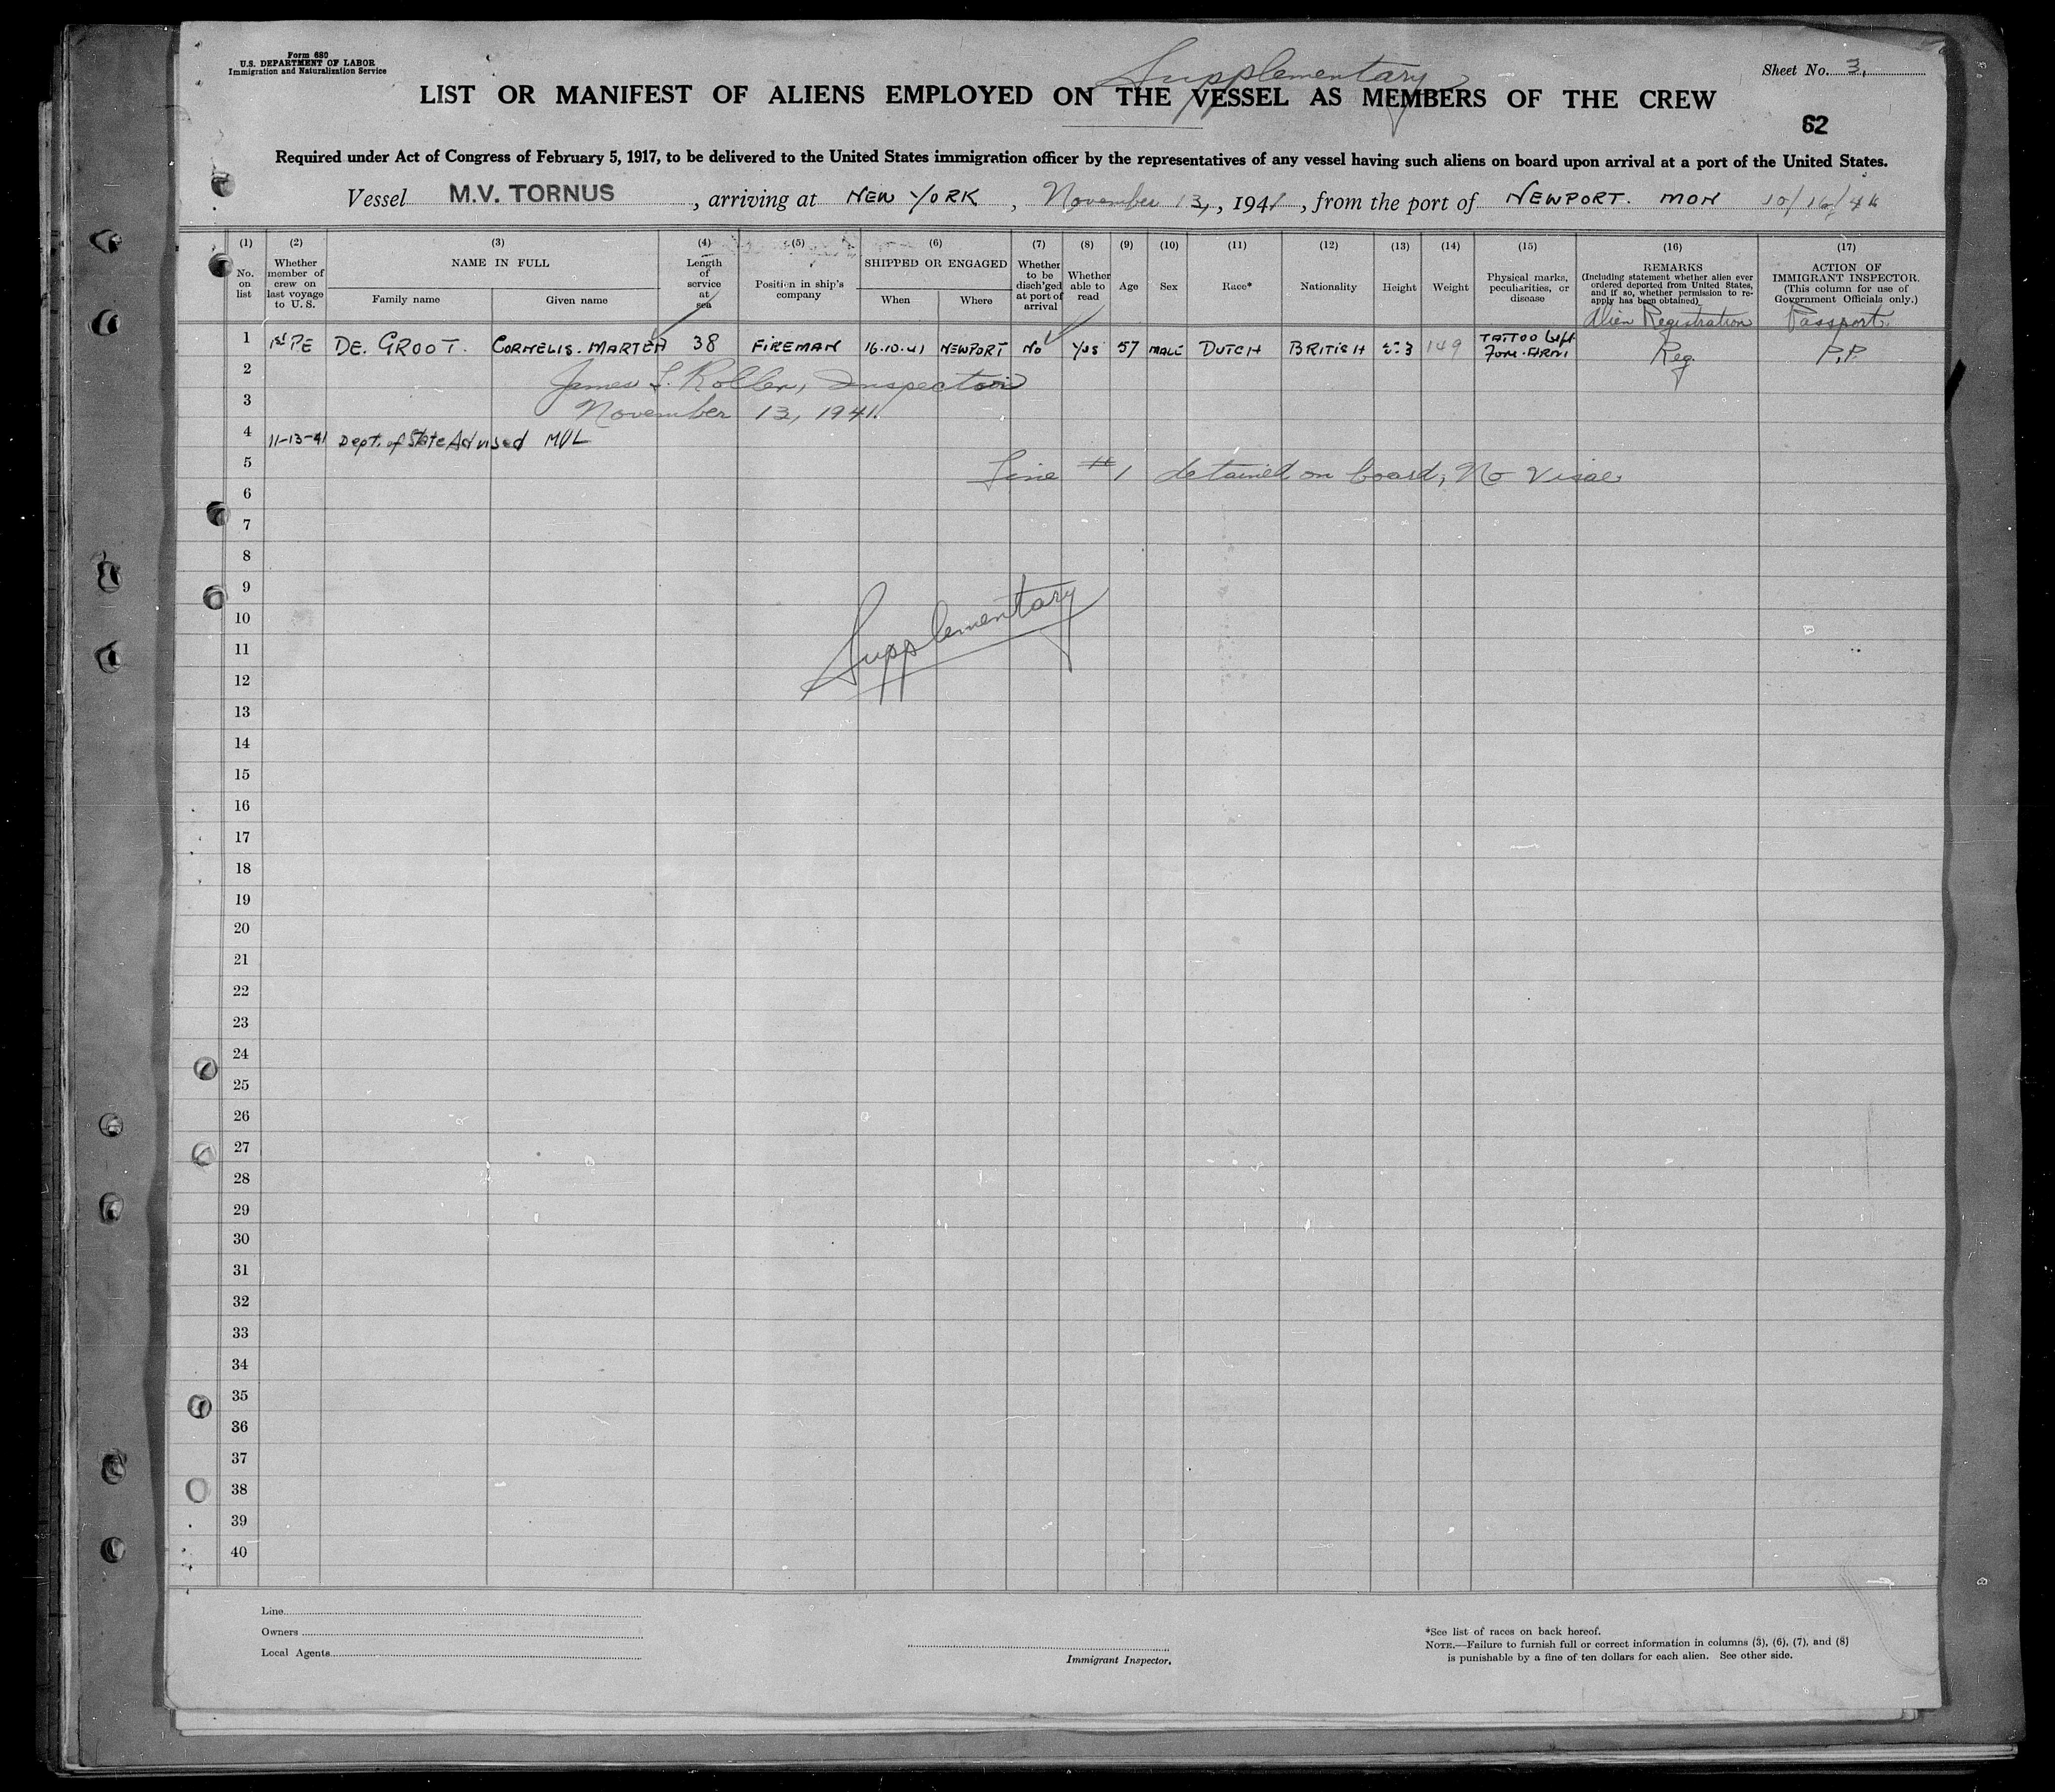 Form 680
U.S. DEPARTMENT OF LABOR
Immigration and Naturalization Service
Supplementary
Sheet No. 3,
LIST OR MANIFEST OF ALIENS EMPLOYED ON THE VESSEL AS MEMBERS OF THE CREW
62
Required under Act of Congress of February 5, 1917, to be delivered to the United States immigration officer by the representatives of any vessel having such aliens on board upon arrival at a port of the United States.
Vessel M.V. TORNUS, arriving at NEW YORK, November 13, 1941, from the port of NEWPORT. MON 10/16/
(1) (2) (3) (4) (5) (6) (7) (8) (9) (10) (11) (12) (13) (14) (15) (16) (17)
No. on list
Whether member of crew on last voyage to U. S.
NAME IN FULL
Family name
Given name
Length of service at sea
Position in ship's company
SHIPPED OR ENGAGED
When
Where
Whether to be disch'ged at port of arrival
Whether able to read
Age
Sex
Race*
Nationality
Height
Weight
Physical marks, peculiarities, or disease
REMARKS
(Including statement whether alien ever ordered deported from United States, and if so, whether permission to re-apply has been obtained)
Alien Registration
ACTION OF IMMIGRANT INSPECTOR.
(This column for use of Government Officials only.)
Passport.
1 1st PE DE. GROOT. CORNELIS. MARTEN 38 FIREMAN 16.10.41 NEWPORT NO YES 57 MALE DUTCH BRITISH 149 TATTOO Left Fore. ARM Reg. P.P.
2 James L. Roller, Inspector
3 November 13, 1941.
4 11-13-41 Dept. of State Advised MVL
5 Line #1 detained on board, No Visae
6
7
8
9
Supplementary
10
11
12
13
14
15
16
17
18
19
20
21
22
23
24
25
26
27
28
29
30
31
32
33
34
35
36
37
38
39
40
Line
Owners
Local Agents
Immigrant Inspector.
*See list of races on back hereof.
NOTE.—Failure to furnish full or correct information in columns (3), (6), (7), and (8)
is punishable by a fine of ten dollars for each alien. See other side.